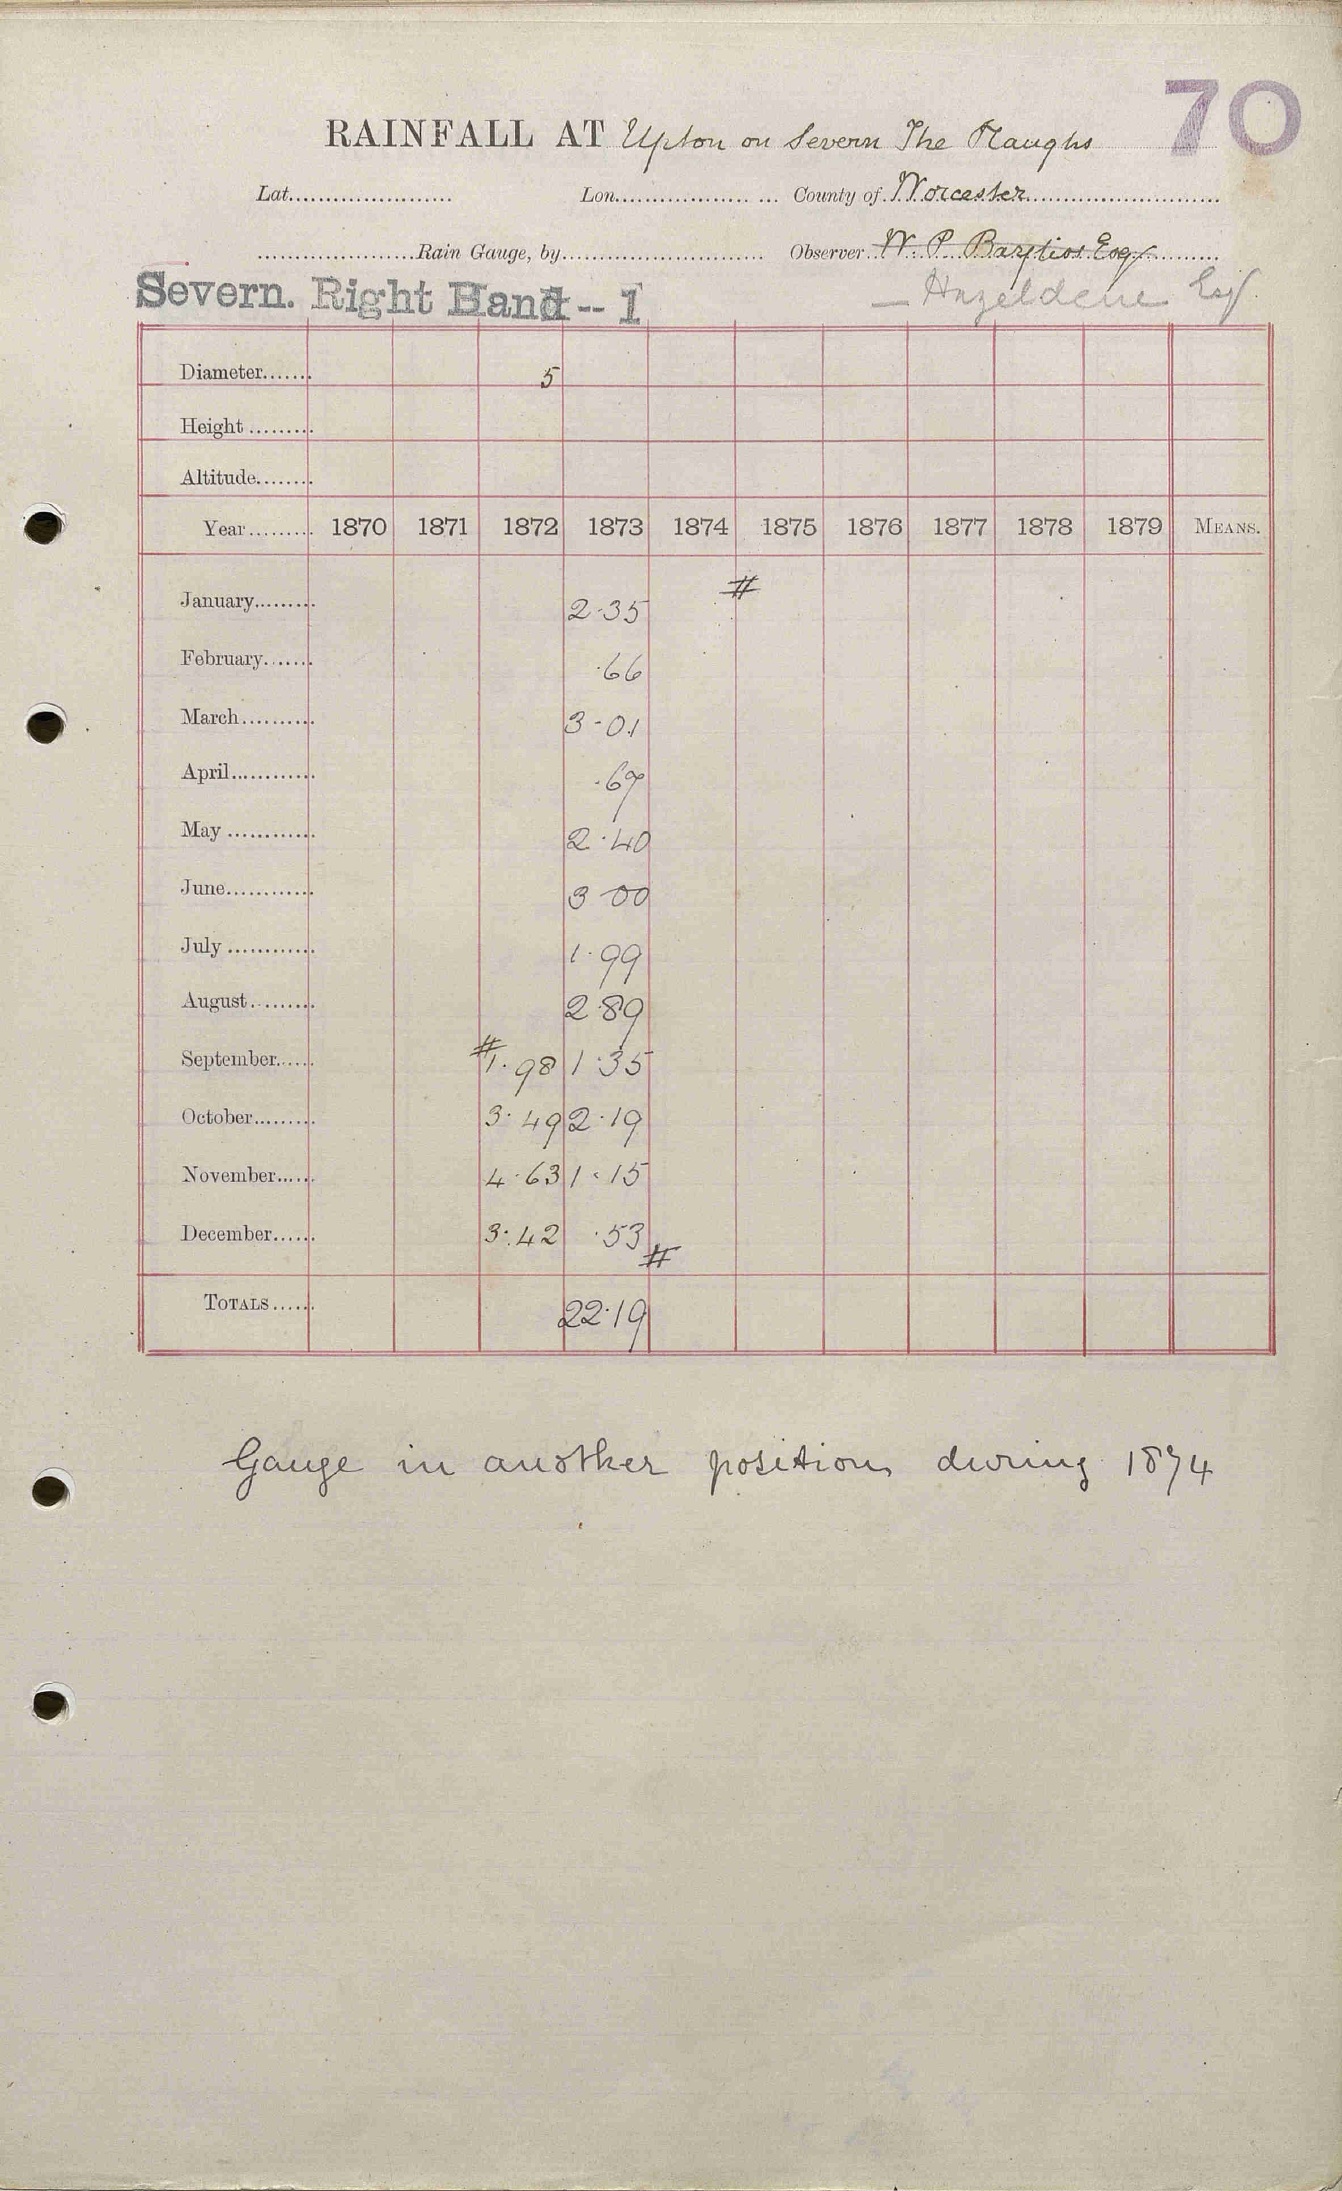 70
RAINFALL AT Upton on Severn The
Lat. Lon. County of Worcester
Rain Gauge, by Observer W. P. Esq
Severn. Right Hand -- 1 — Hazeldene Esq
Diameter 5
Height
Altitude
Year 1870 1871 1872 1873 1874 1875 1876 1877 1878 1879 MEANS.
January 2·35 #
February ·66
March 3·01
April ·67
May 2·40
June 3·00
July 1·99
August 2·89
September # 1·98 1·35
October 3·49 2·19
November 4·63 1·15
December 3·42 ·53 #
TOTALS 22·19
Gauge in another position during 1874